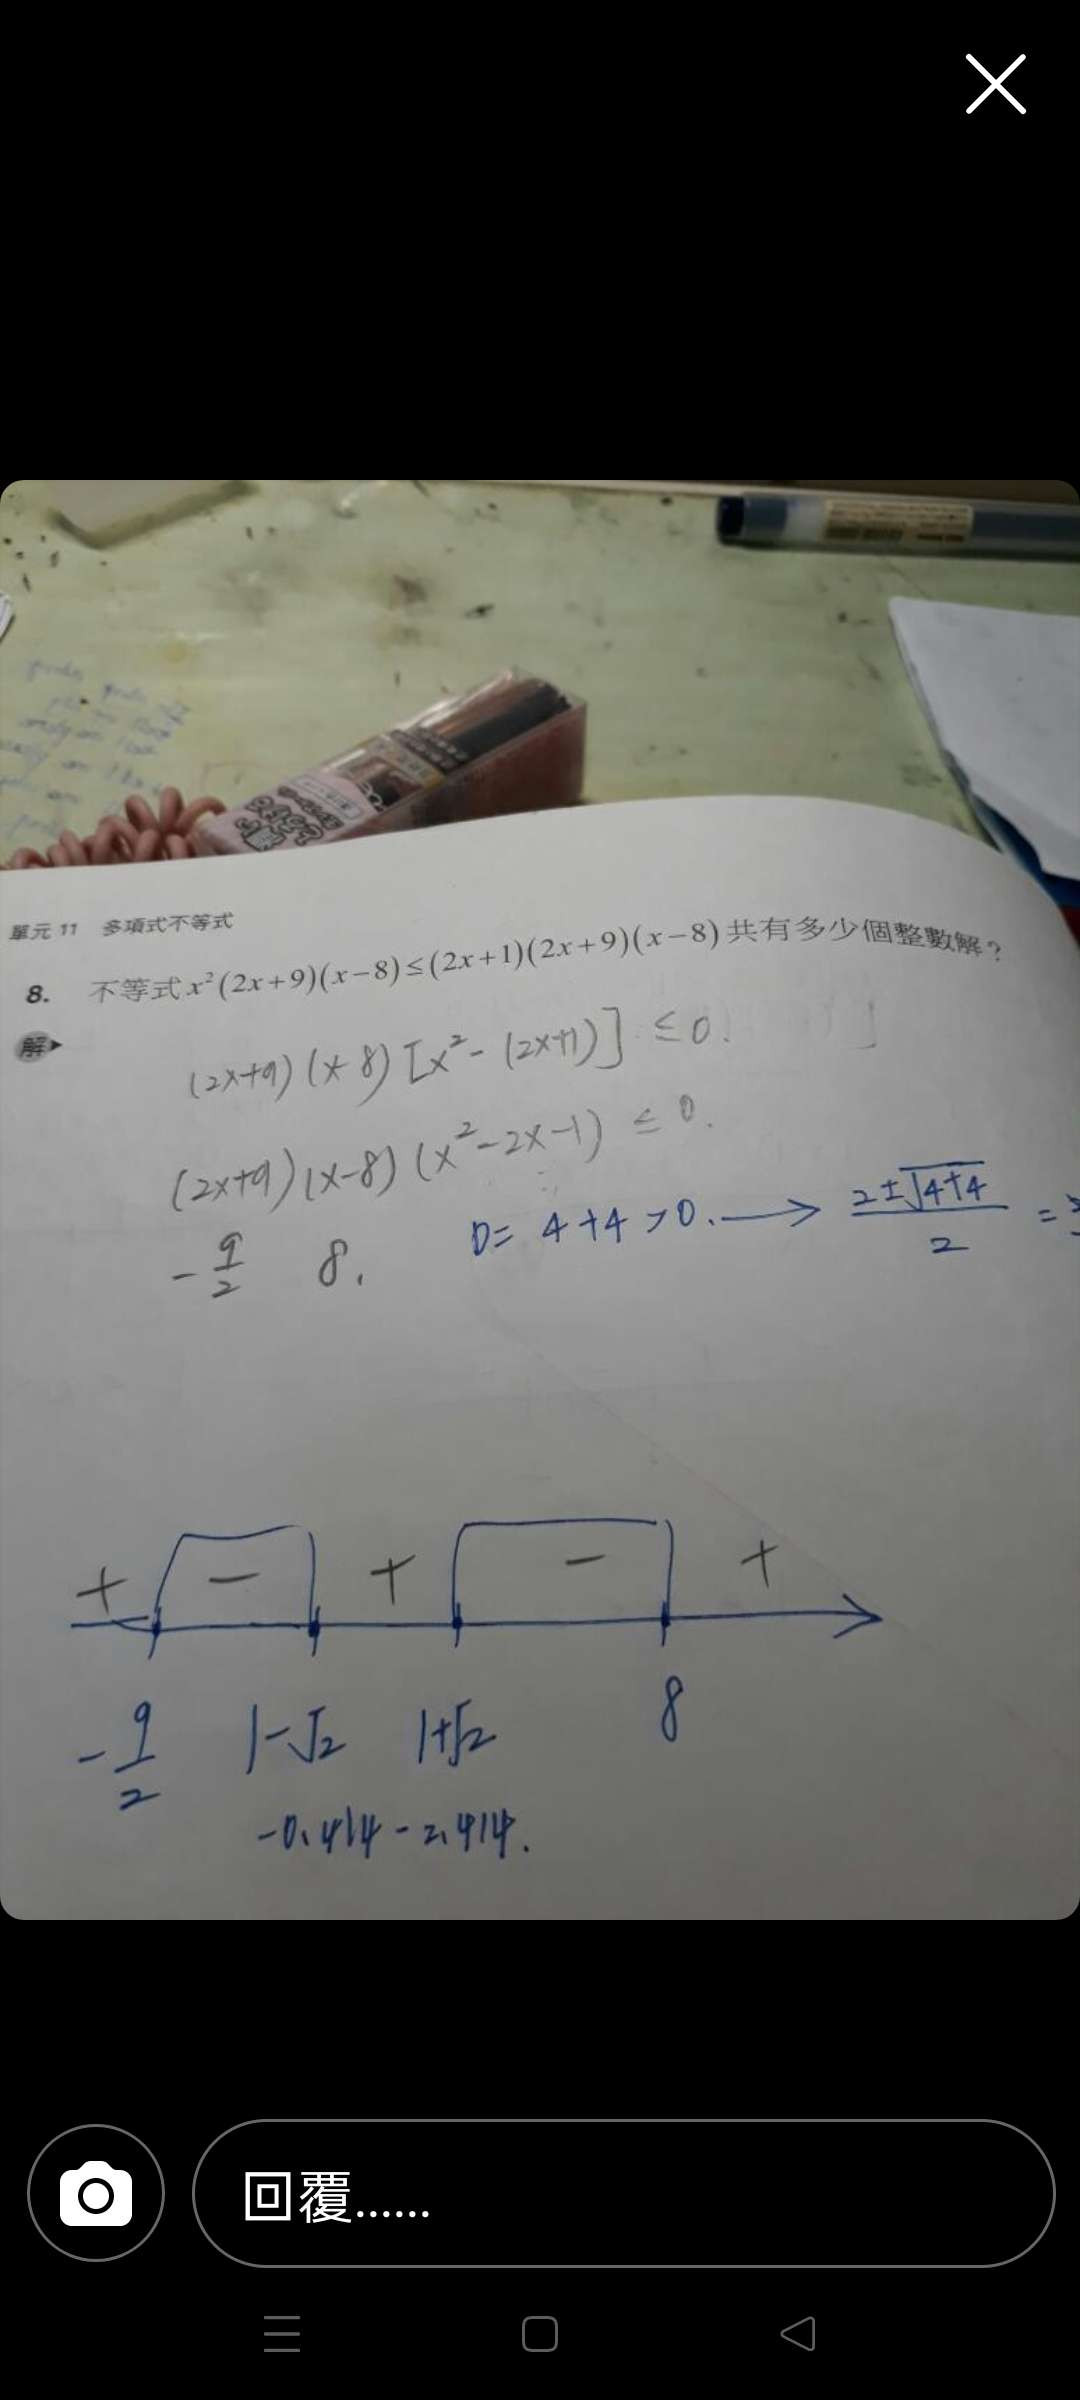 單元 11 多項式不等式
8. 不等式 x²(2x+9)(x−8)≤(2x+1)(2x+9)(x−8) 共有多少個整數解？
解
(2x+9)(x-8)[x²-(2x+1)] ≤0.
(2x+9)(x-8)(x²-2x-1) ≤0.
-9/2 8. D= 4+4>0. → 2±√4+4/2 =
+ - + - +
-9/2 1-√2 1+√2 8
-0.414 - 2.414.
回覆......